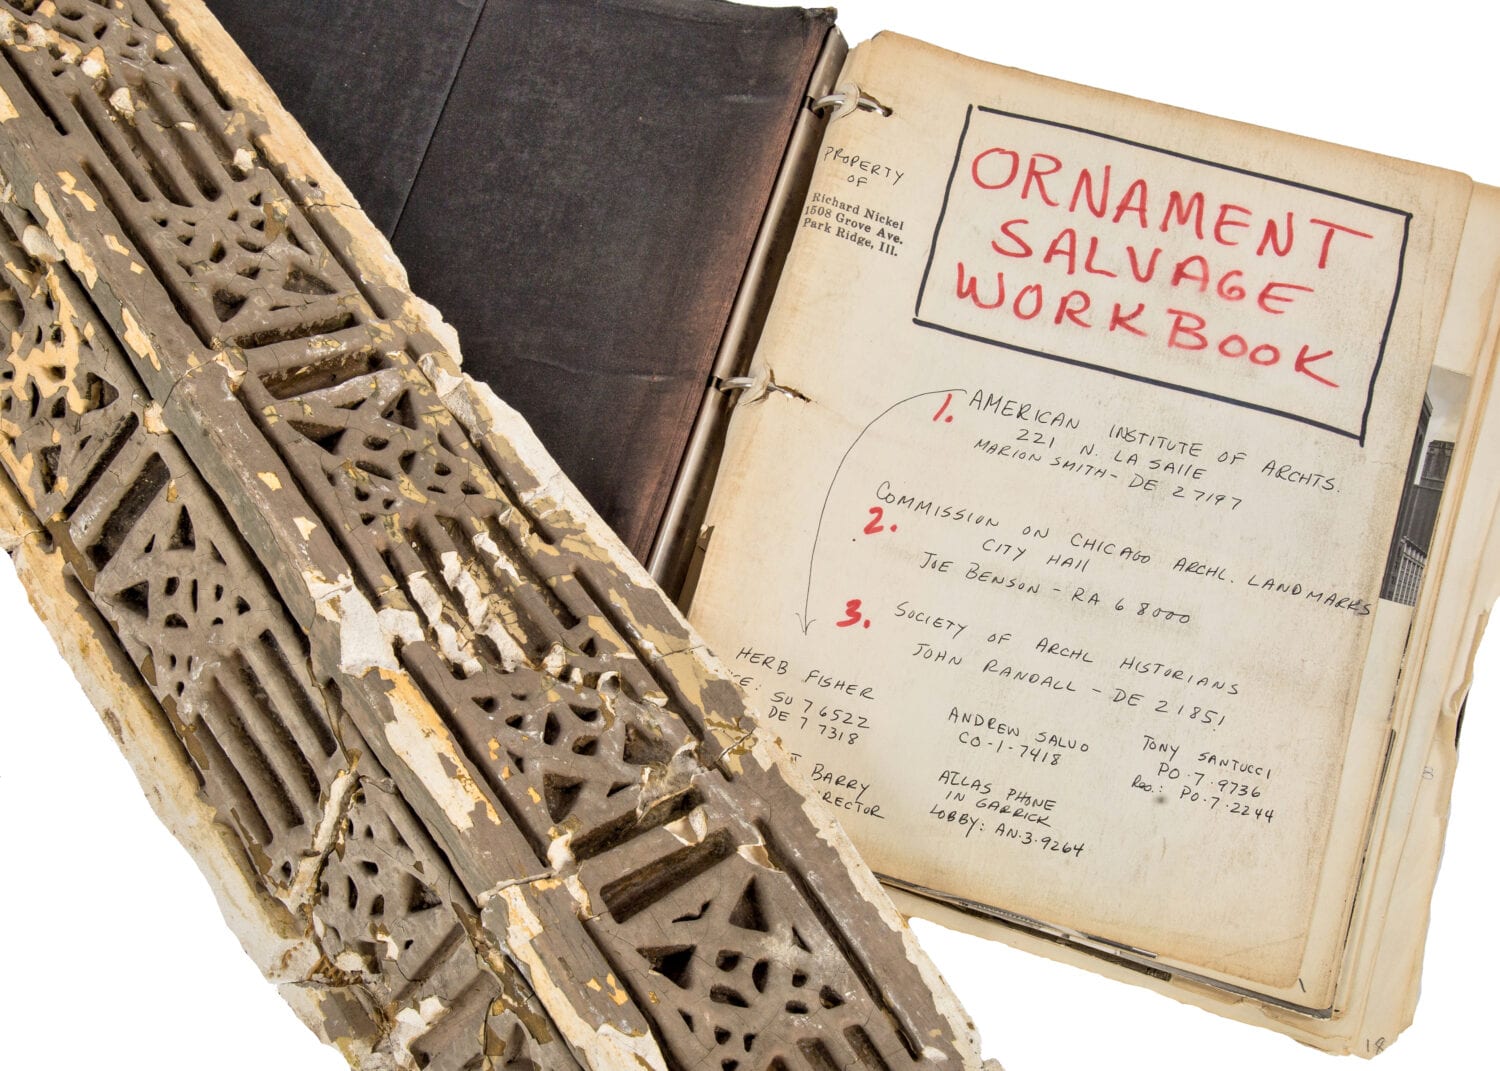 PROPERTY
OF
Richard Nickel
1508 Grove Ave.
Park Ridge, Ill.
ORNAMENT
SALVAGE
WORKBOOK
1. AMERICAN INSTITUTE OF ARCHTS.
221 N. LA SAllE
MARION SMITH - DE 2 7197
2. COMMISSION ON CHICAGO ARCHL. LANDMARKS
CITY HAll
JOE BENSON - RA 6 8000
3. SOCIETY OF ARCHL HISTORIANS
JOHN RANDALL - DE 2 1851
HERB FISHER
SU 7 6522
DE 7 7318
BARRY
ANDREW SALVO
CO-1-7418
ATLAS PHONE
IN GARRICK
LOBBY: AN.3.9264
TONY SANTUCCI
PO.7.9736
RES.: PO.7.2244
18